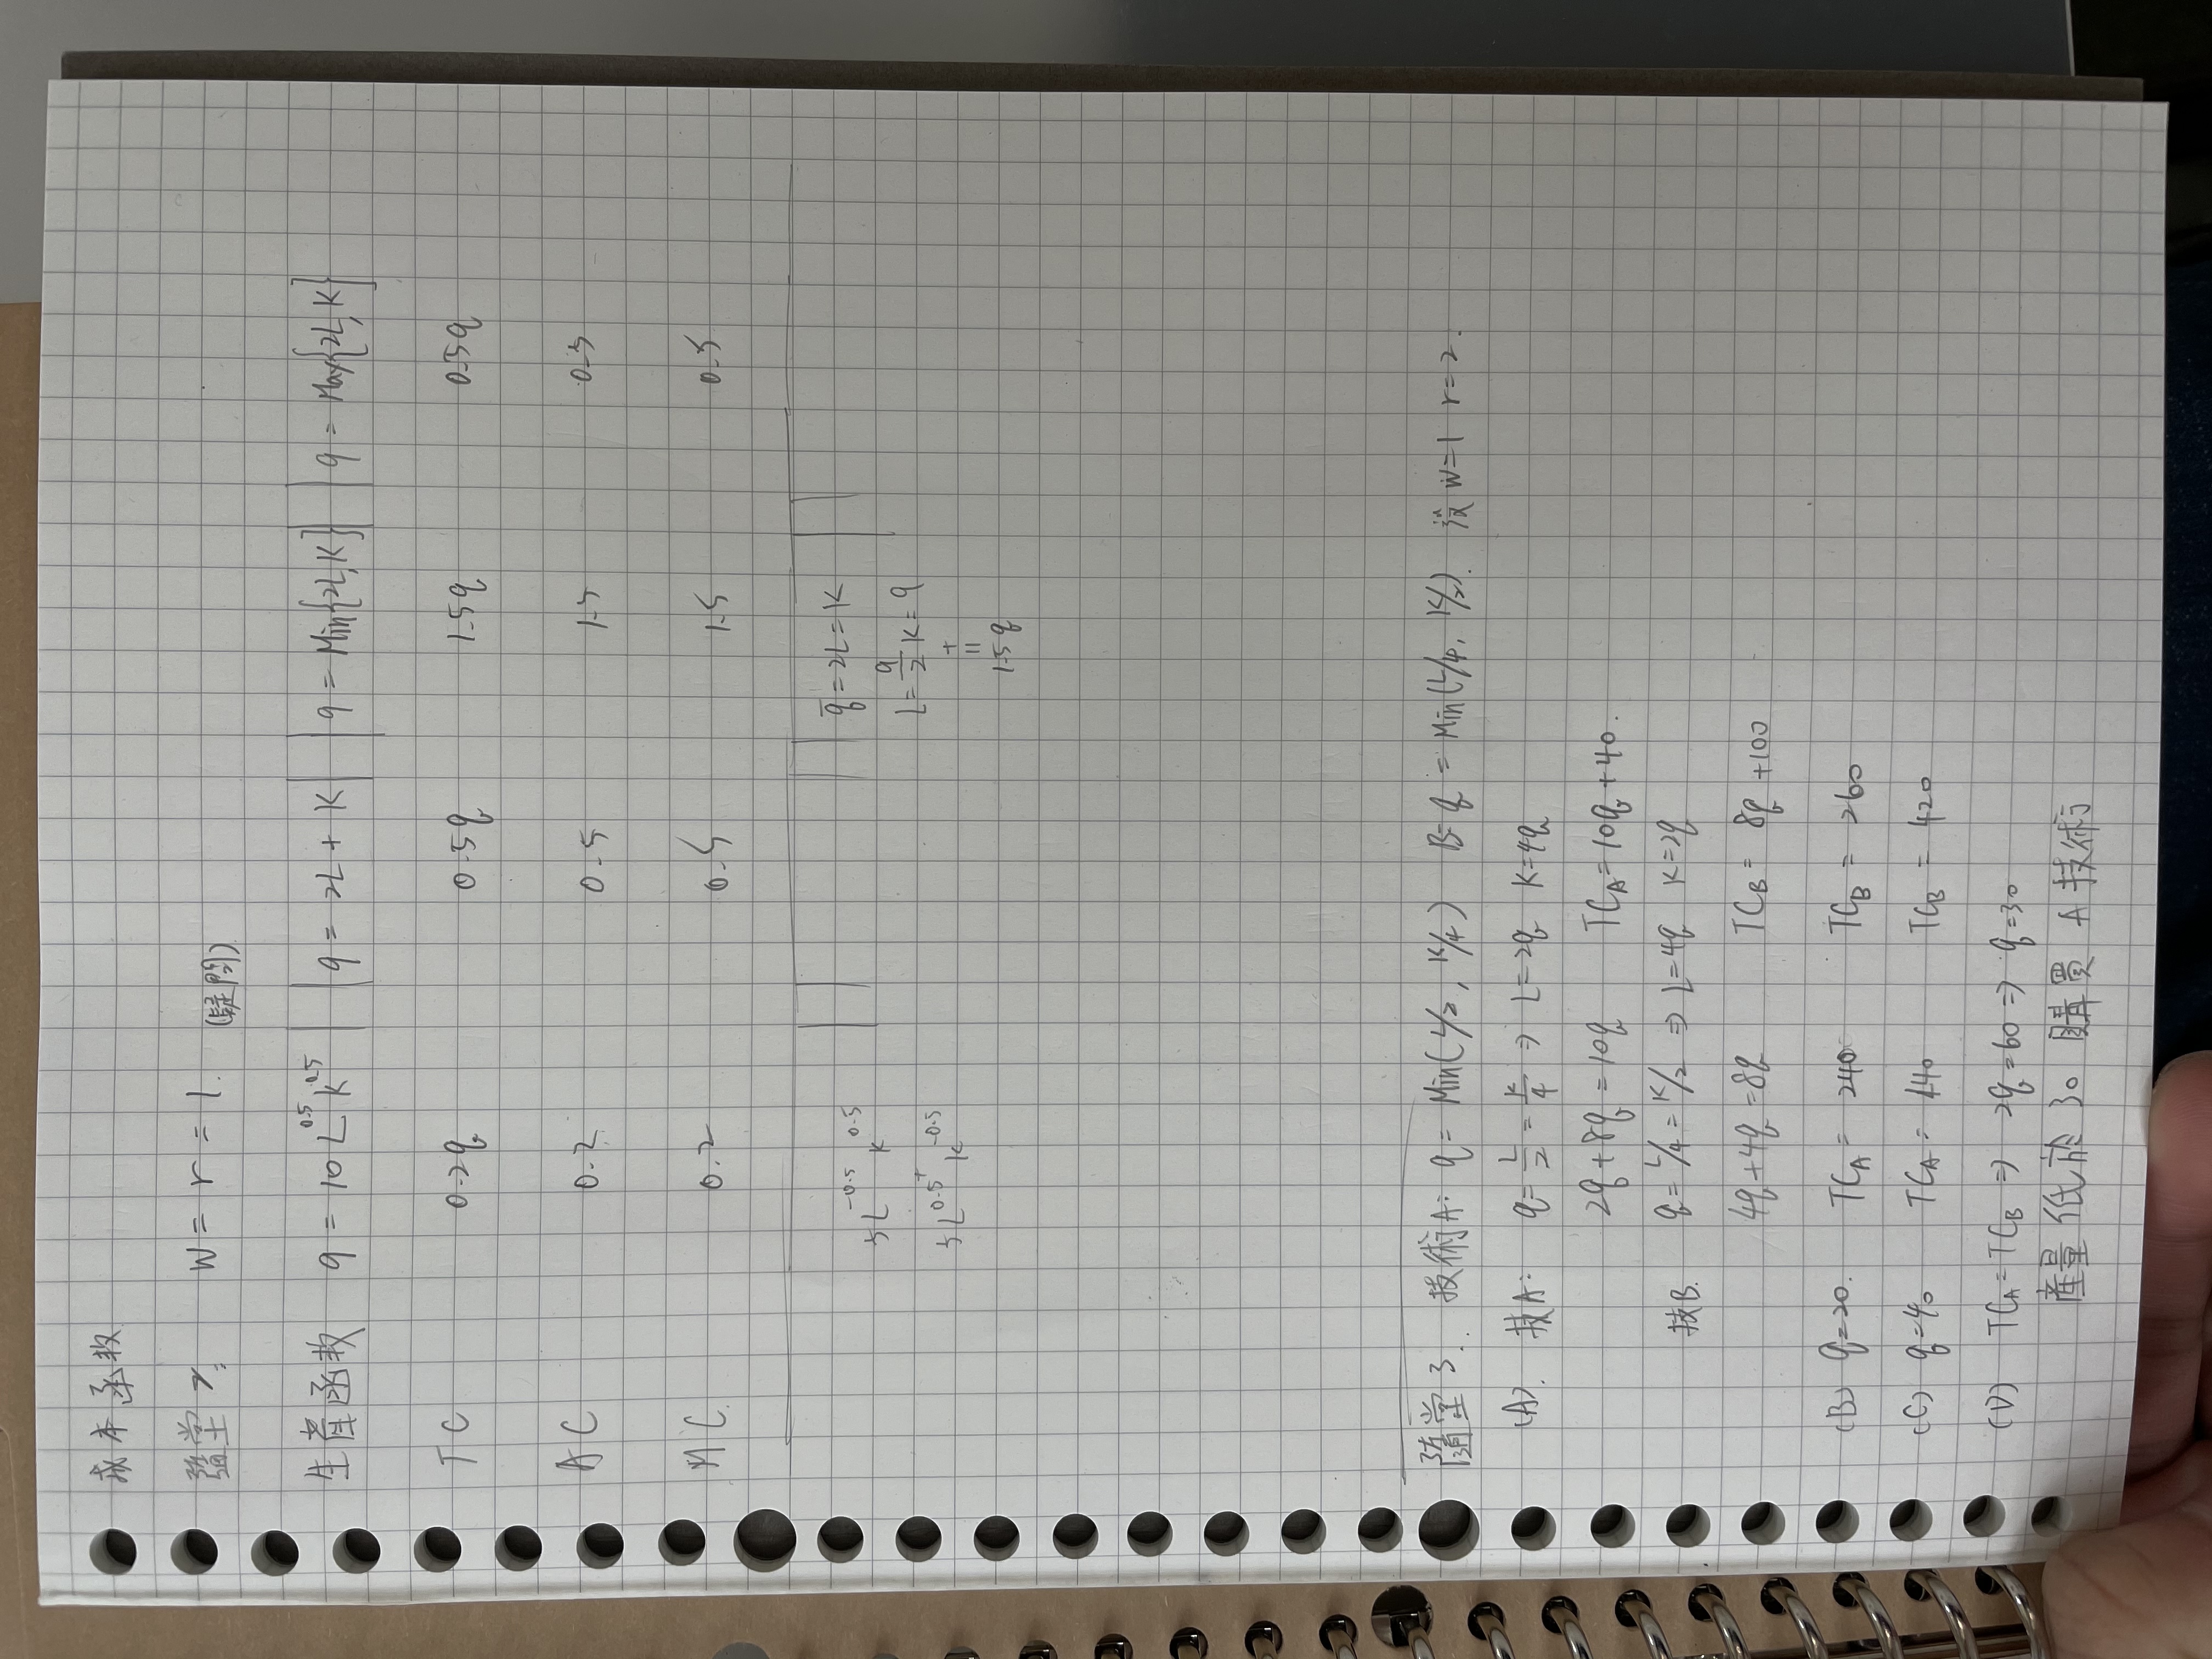 成本函数
隨堂2. W = r = 1. (疑問)
生產函数 q = 10 L^0.5 K^0.5 | | q = 2L + K | | q = Min{2L, K} | | q = Max{2L, K}
TC 0.2q 0.5q 1.5q 0.5q
AC 0.2 0.5 1.5 0.5
MC. 0.2 0.5 1.5 0.5
q̄ = 2L = K
5L^-0.5 K^0.5
L = q/2 K = q
+
5L^0.5 K^-0.5
+
=
1.5q
隨堂3. 技術A: q = Min(L/2, K/4) B: q = Min(L/4, K/2). 設 w=1 r=2.
(A). 技A: q = L/2 = K/4 ⇒ L=2q K=4q
2q+8q = 10q TCA = 10q +40.
技B. q = L/4 = K/2 ⇒ L=4q K=2q
4q+4q = 8q TCB = 8q +100
(B) q=20. TCA = 240 TCB = 260
(C) q=40 TCA = 440 TCB = 420
(D) TCA = TCB ⇒ 2q=60 ⇒ q=30
產量低於30購買A技術